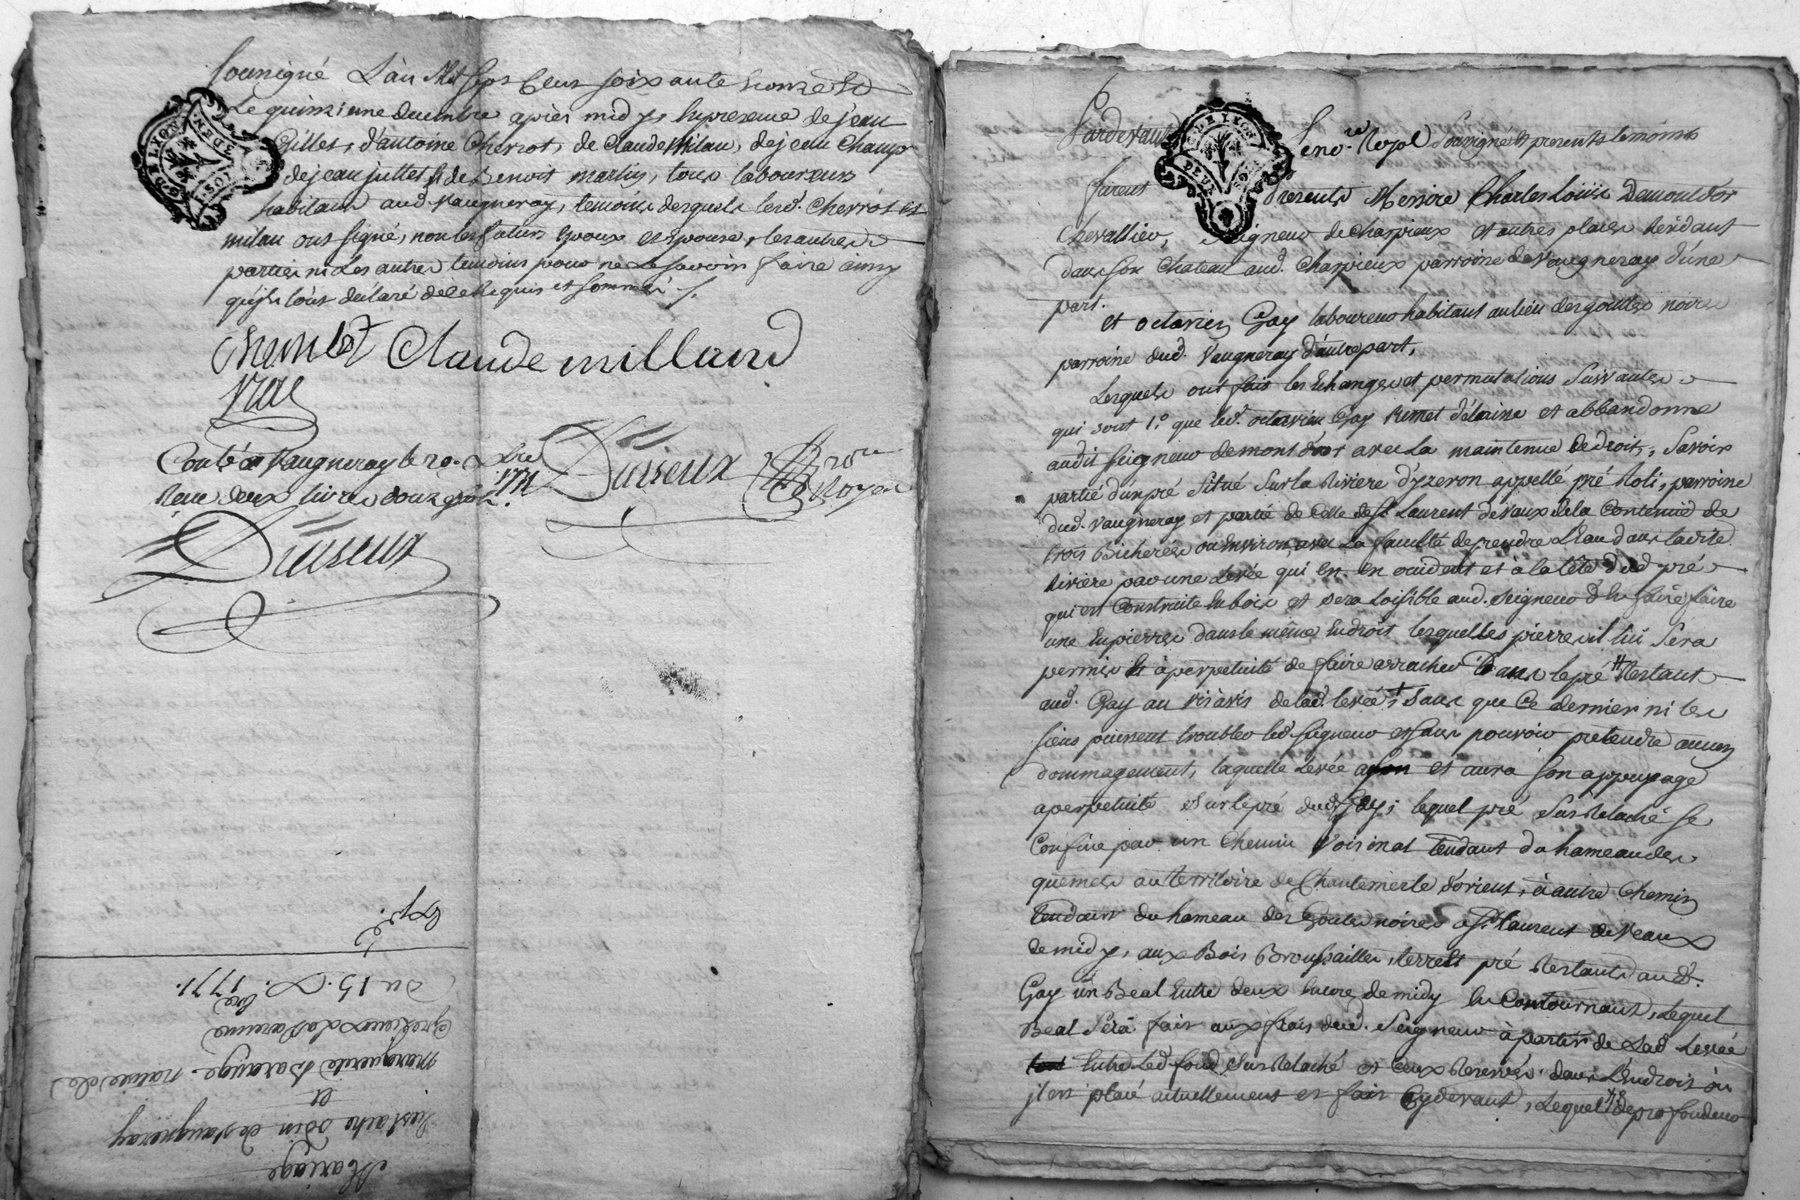 soussigné L'an Mil sept Cent soixante et onze et
Le quinzieme decembre après midy, En presence de jean
Gillet, d'antoine Cherrot, de Claude Milan, de jean Champ
de jean juttet & de Benoit martin, tous laboureurs
habitans aud. Vaugneray, temoins desquels lesd. Cherrot et
milan ont signé, non les futurs Epoux et Epouse, les autres
parties ni Les autres temoins pour ne Le savoir faire ainsy
qu'ils l'ont déclaré de ce Requis et sommés
Claude millaud
Conlé a Vaugneray le 20. Xbre 1771
Reçu deux livres douze sols.
Dusseux
Royer
Dusseux
G. DE LYON
DEUX SOLS
Expd.
Du 15. Xbre. 1771.
Grezieux La Varenne
marguerite Barange native de
et
Eustache odin de Vaugneray
Mariage
Pardevant Le no.re Royal soussigné et presents temoins
furent presents Messire Charles Louis Demontd'or
Chevallier, Seigneur de charpieux et autres places Résidant
dans son Chateau aud. Charpieux parroisse de Vaugneray d'une
part.
et octavien Gay laboureur habitant au lieu des gouttes noires
parroisse dud. Vaugneray d'autre part,
Lesquels ont fait les Echanges et permutations suivantes
qui sont 1.º que led. octavien Gay Remet délaisse et abbandonne
audit seigneur demontd'or avec La maintenue de droit, Savoir
partie d'un pré situé sur la Riviere d'yzeron appellé pré Roli, parroisse
dud. Vaugneray et partie de Celle de St Laurent de vaux de la Contenue de
trois bicherées ou Environ, avec La faculté de prendre L'eau dans ladite
Riviere par une Levée qui est en occident et à la tête dud. pré
qui est Construite en bois et sera loisible aud. seigneur d'en faire faire
une en pierres dans le même Endroit lesquelles pierres il lui sera
permis à perpetuité de faire arracher dans le pré Restant
aud. Gay au vis à vis de lad. levée, sans que Ce dernier ni les
siens puissent troubler led. seigneur et sans pouvoir pretendre aucun
dommagement, laquelle Levée a et aura son appuyage
a perpetuité sur le pré dud. Gay; lequel pré sus Relaché se
Confine par un Chemin Voisinal tendant du hameau des
quemes au territoire de Chantemerle d'orient, à autre Chemin
tendant du hameau des Goutes noires a St Laurent de Veaux
de midy, aux Bois Broussailles, terre et pré Restants aud.
Gay un Beal Entre deux Encore de midy Le Contournant, Lequel
Beal sera fait aux frais dud. Seigneur à partir de Lad. Levée
Entre Led. fond sus Relaché et Ceux Reservés dans L'endroit ou
il est placé actuellement et fait Cydevant, Lequel de profondeur